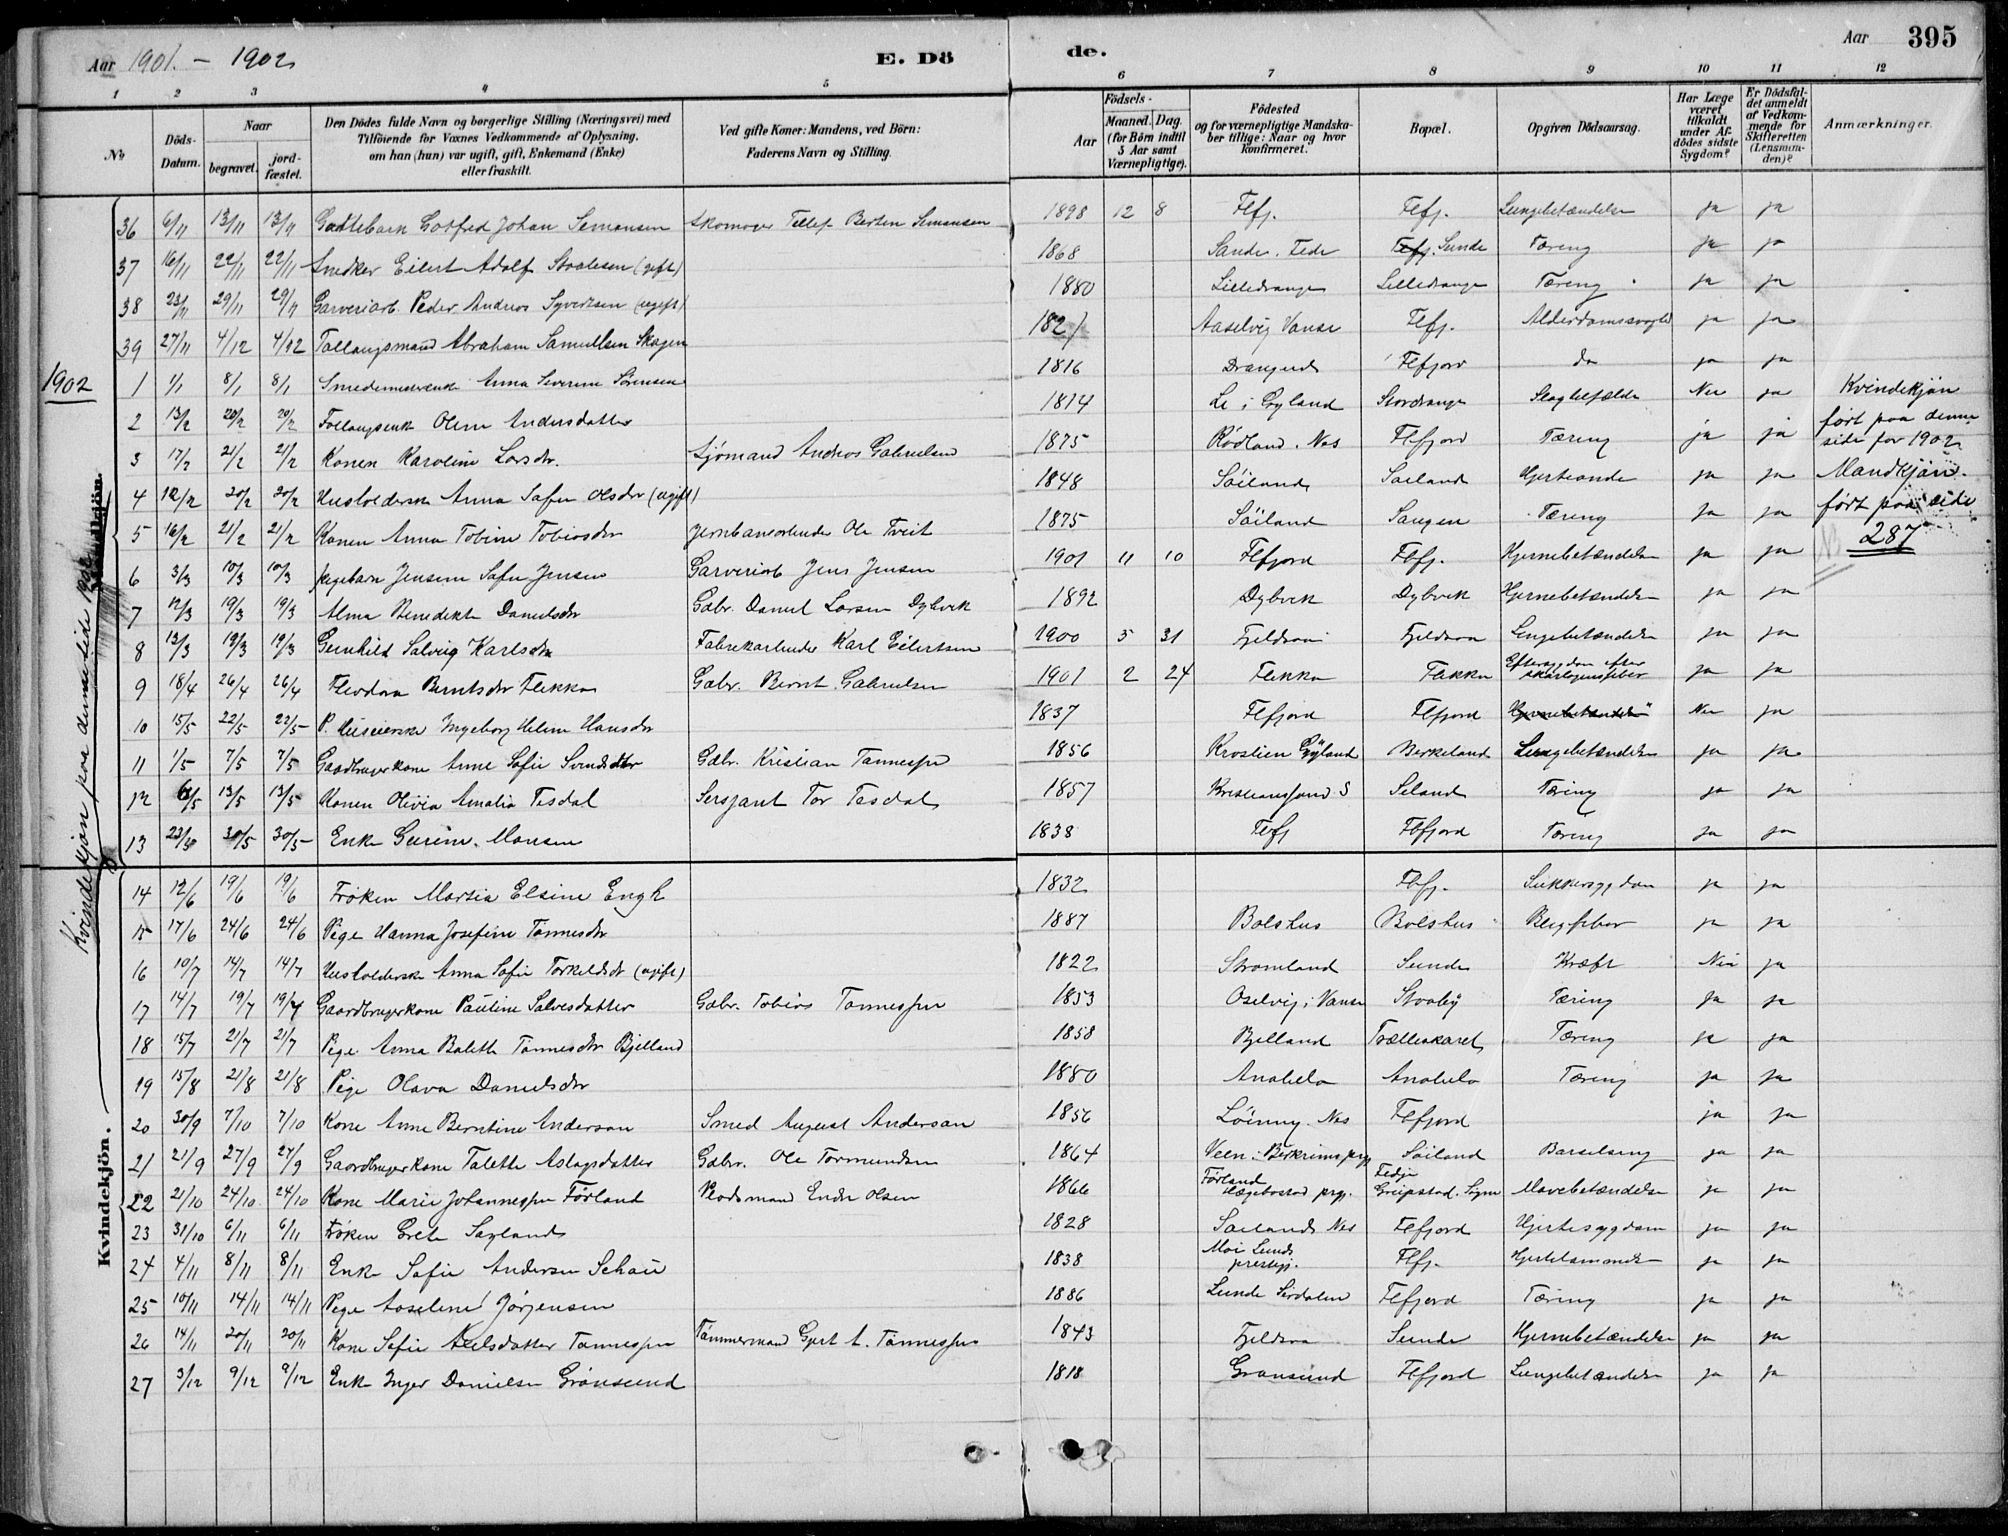 Aar 1901. - 1902
E. Dö
de.
Aar 395
1 2 3 4 5 6 7 8 9 10 11 12
No
Döds-Datum.
Naar
begravet.
jord-fæstet.
Den Dödes fulde Navn og borgerlige Stilling (Næringsvei) med
Tilföiende for Voxnes Vedkommende af Oplysning,
om han (hun) var ugift, gift, Enkemand (Enke)
eller fraskilt.
Ved gifte Koner: Mandens, ved Börn:
Faderens Navn og Stilling.
Födsels-
Aar
Maaned. Dag.
(for Börn indtil
5 Aar samt
Værnepligtige).
Födested
og for værnepligtige Mandska-
ber tillige: Naar og hvor
konfirmeret.
Bopæl.
Opgiven Dödsaarsag.
Har Læge
været
tilkaldt
under Af-
dödes sidste
Sygdom?
Er Dödsfal-
det anmeldt
af Vedkom-
mende for
Skifteretten
(Lensman-
den)?
Anmærkninger.
36 6/11 13/11 13/11 Gotfred Johan Simonsen Bertin Simonsen 1898 12 8 Flfj. Flfj. Lungebetændelse ja ja
37 16/11 22/11 22/11 Snedker Eilert Adolf Staalesen (gift) 1868 Sande. Fede Flfj. Sunde Tæring ja ja
38 23/11 29/11 29/11 Garveriarb. Peder Andreas Syvertsen (ugift) 1880 Lilledrange Lilledrange Tæring ja ja
39 27/11 4/12 4/12 Abraham Samuelsen Skogen 182 Aaselvig Vanse Flfj. Alderdomssvaghed ja ja
1902
1 1/1 8/1 8/1 Anna Severine Sörensen 1816 Drangeid Flfjord do ja ja
2 13/2 20/2 20/2 Oline Andersdatter 1814 Gyland Stordrange Nei ja
3 17/2 21/2 21/2 Konen Karoline Larsdr. Sjömand Andreas Gabrielsen 1875 Rödland. Nes Flfjord Tæring ja ja
4 12/2 20/2 20/2 Husholderske Anna Sofie Olsdr (ugift) 1848 Söiland Söiland Hjerteonde ja ja
5 16/2 21/2 21/2 Konen Anna Tobine Tobiasdr Jernbanearbeider Ole Tveit 1875 Söiland Tæring ja ja
6 3/3 10/3 10/3 Pigebarn Jensine Sofie Jensen Garveriarb Jens Jensen 1901 11 10 Flfjord Flfj. Hjernebetændelse ja ja
7 12/3 19/3 19/3 Alma Benedikte Danielsdr Gdbr. Daniel Larsen Dybvik 1892 Dybvik Dybvik Hjernebetændelse ja ja
8 13/3 19/3 19/3 Gunhild Solveig Karlsdr Fabrikarbeider Karl Eilertsen 1900 5 31 Fjeldsaa Fjeldsaa Lungebetændelse ja ja
9 18/4 26/4 26/4 Theodora Berntsdr Flikka Gdbr. Bernt Gabrielsen 1901 2 24 Flikka Flikka Eftersygdom efter skarlagensfeber ja ja
10 15/5 22/5 22/5 Ingeborg Helene Hansdr 1837 Flfjord Flfjord Hjernebetændelse Nei ja
11 1/5 7/5 7/5 Gaardbrugerkone Anne Sofie Svendsdtr Gdbr. Kristian Tønnessen 1856 Gyland Birkeland Lungebetændelse ja ja
12 6/5 13/5 13/5 Konen Olivia Amalia Tesdal Sersjant Tor Tesdal 1857 Kristianssand S Tæring ja ja
13 23/5 30/5 30/5 Enke Gurine Monsen 1838 Flfj Flfjord Tæring ja ja
14 12/6 19/6 19/6 Frøken Elsine Engh 1832 Flfj. Sukkersygdom ja ja
15 17/6 24/6 24/6 Pige Hanna Josefine Tønnesdr 1887 Bolshus Bolshus ja ja
16 10/7 14/7 14/7 Husholderske Anna Sofie Torkeldsdr (ugift) 1822 Stromland Sunde Kræft Nei ja
17 14/7 19/7 19/7 Gaardbrugerkone Pauline Salvesdatter Gdbr. Tobias Tønnessen 1853 Oselvig i Vanse Tæring ja ja
18 15/7 21/7 21/7 Pige Anna Tönnesdr Bjelland 1858 Bjelland Trælleskaret Tæring ja ja
19 15/8 21/8 21/8 Pige Olava Danielsdr 1880 Anabelø Anabelø Tæring ja ja
20 30/9 7/10 7/10 Kone Anne Berntine Anderson Smed August Anderson 1856 Löining. Nes Flfjord ja ja
21 21/9 27/9 27/9 Gaardbrugerkone Talette Aslagsdatter Gdbr. Ole Tormundsen 1864 Veen i Birkrims prgj. Söiland Barselseng ja ja
22 21/10 24/10 24/10 Kone Marie Johannessen Förland Endre Olsen 1866 Förland prgj. Fedje Mavebetændelse ja ja
23 31/10 6/11 6/11 Frøken Grete Søyland 1828 Söiland Nes Flfjord Hjertesygdom ja ja
24 4/11 8/11 8/11 Enke Sofie Andersen Schau 1838 Moi Lunds prestegj. Flfj. Hjertelammelse ja ja
25 10/11 14/11 14/11 Pige Aaseline Jørgensen 1886 Lunde Sirdalen Flfjord Tæring ja ja
26 14/11 20/11 20/11 Kone Sofie Tønnessen Tømmermand Gjert A. Tønnessen 1843 Fjeldsaa Sunde Hjernebetændelse ja ja
27 3/12 9/12 9/12 Enke Inger Danielsen Grönsund 1818 Grønsund Flfjord Lungebetændelse ja ja
Kvindekjön
ført paa denne
side for 1902
Mandkjön
ført paa side
287
Kvindekjön paa denne side 1902
Kvindekjön.